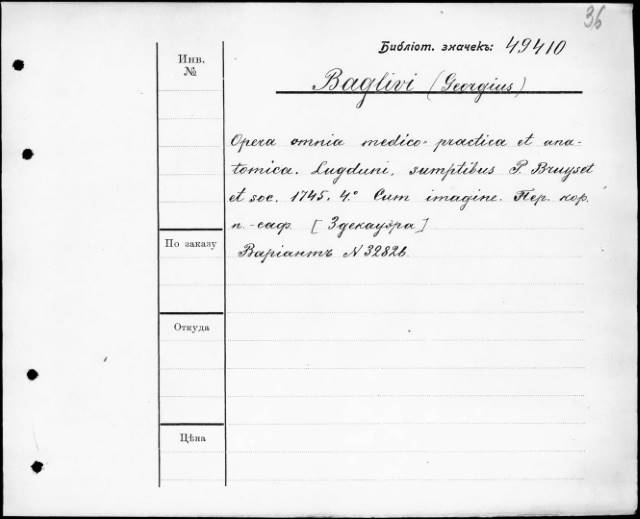 36
Библіот. значекъ: 49410
Инв. №
Baglivi (Georgius)
Opera omnia medico-practica et ana-
tomica. Lugduni, sumptibus P. Bruyset
et soc. 1745. 4.° Cum imagine. Пер. кор.
п.-саф. [Здекауэра]
По заказу
Варіантъ N 32826.
Откуда
Цѣна